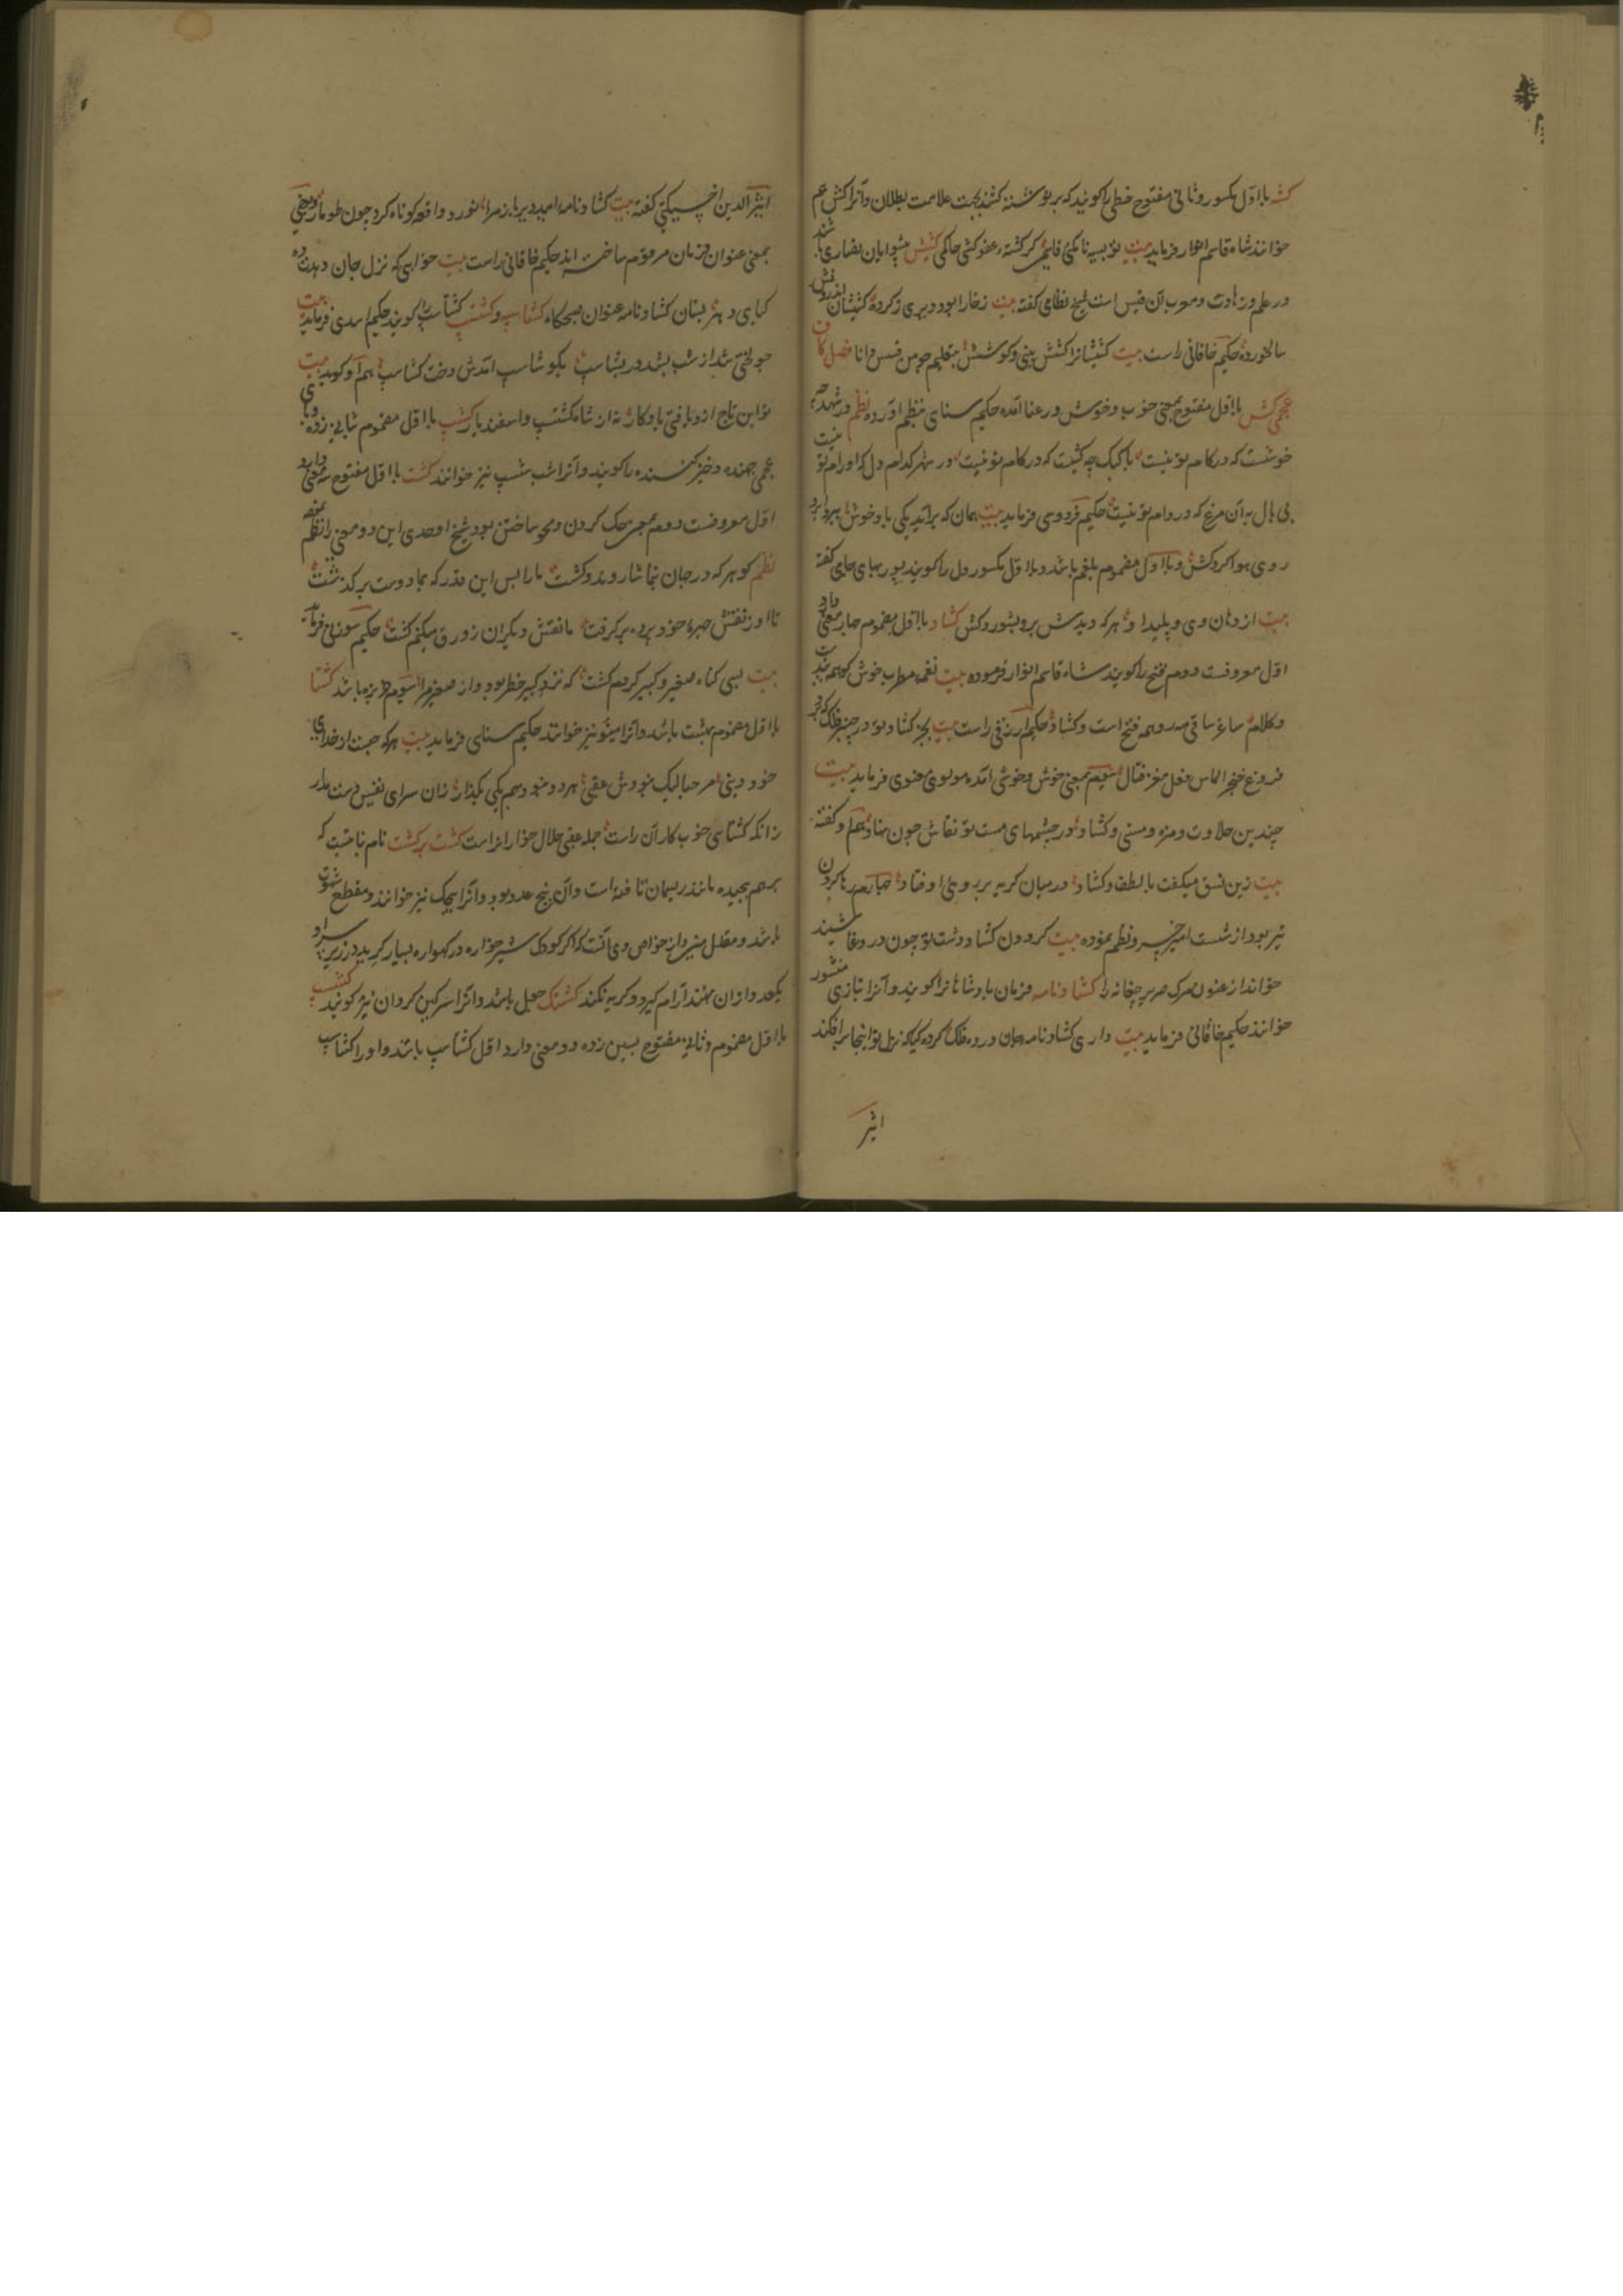 کشه با اول مکسور و ثانی مفتوح خطی را کویند که بر نوشته کشند بجهت علامت بطلان و آنرا کش هم
خوانند شاه قاسم انوار فرماید بیت کشیش پیشوایان نصاری باشند
در علم و زهادت و معرب آن قسیس است شیخ نظامی کفته بیت
سالخورده حکیم خاقانی راست بیت کشیشانرا کشش بینی و کوشش بتعلیم چو من قسیس دانا فصل کاف
عجمی کش با اول مفتوح بمعنی خوب و خوش و رعنا آمده حکیم سنای بنظم آورده نظم
خوشست که در کام تو نیست یا کبک چه کشیست که در کام تو نیست در شهر کدام دل که او رام تو نیست
بی بال بر آن مرغ که در دام تو نیست حکیم فردوسی فرماید بیت همان که بر آمد یکی باد خوش ببرد ابر
روی هوا کرد کش و با اول مضموم بلغم باشد و با اول مکسور دل را کویند پور بهای جامی کفته
بیت از دهان وی و پلیدا و هر که دیدش برو بشورد کش کشاد با اول مضموم چهار معنی دارد
اول معروفست دوم فتح را کویند شاه قاسم انوار فرموده بیت نغمه مطرب خوش کو همه بندست
و کلام ساغر ساقی مهرو همه فتح است و کشاد حکیم ازرقی راست بیت بجز کشاد تو در چنبر فلک که برد
فروغ خنجر الماس فعل مغز قتال سیوم بمعنی خوش و خوشی آمده مولوی معنوی فرماید بیت
چندین حلاوت و مزه و مستی و کشاد در چشمهای مست تو نقاش چون نهاد هم او کفته
بیت زین نسق میکفت با لطف و کشاد در میان کریه بر روی اوفتاد چهارم رها کردن
تیر بود از شست امیر خسرو نظم نموده بیت کردون کشاد دشت به چون در وغا شنید
خواند از غنون مرک صریر چغانه را کشادنامه فرمان پادشاهانرا کویند و آنرا بتازی منشور
خوانند حکیم خاقانی فرماید بیت داری کشادنامه جان در ده فلک کرده کیا که نزل تو اینجا بر افکند
اثیر
اثیر الدین اخسیکتی کفته بیت کشادنامه امید دیر باز مرا نورد واقعه کوتاه کرد چون طومار و بعضی
بمعنی عنوان فرمان مرقوم ساخته اند حکیم خاقانی راست بیت خواهی که نزل جان دهدت ده
کیای دهر بستان کشادنامه عنوان صبحکاه کشاسپ و کشتسپ کشتاسپ را کویند حکیم اسدی فرماید بیت
چو لختی شد از شب بشد در بشتاسپ بکوشاسپ آمدش دخت کشاسپ هم او کوید بیت
تو این تاج ازو یافتی یادکار نه از شاه کشتسپ و اسفندیار کشسپ با اول مضموم بثانی زده و بای
عجمی جهنده و خیز کننده را کویند و آنرا شب نیز خوانند کشت با اول مفتوح سه معنی دارد
اول معروفست دوم بمعنی حک کردن و محو ساختن بود شیخ اوحدی این دو معنی را نظم نموده
نظم کو هر که در جهان بتماشا روند و کشت ما را بس این قدر که بما دوست بر کذشت
تا او ز نقش چهره خود پرده بر کرفت ما نقش دیکران ز ورق میکنم کشت حکیم سوزنی فرماید
بیت بسی کناه صغیر و کبیر کردم کشت که نزد کبیر خطر بود و از صغیر مرا سیوم خربزه باشد کشتا
با اول مضموم بهشت باشد و آنرا مینو نیز خوانند حکیم سنای فرماید بیت هر که جست از خدای
خود دینی مرحبا لیک نبودش عقبی هر دو نبود بهم یکی بکذار زان سرای نفیس دست بدار
زانکه کشتای خوب کاران راست جمله عقبی حلال خواران راست کشت بر کشت نام نباتیست که
بر هم پیچیده مانند ریسمان تافته است و آن پنج عدد بود و آنرا پیچک نیز خوانند و مقطع شهوت
باشد و مقلل منی و از خواص وی آنست که اکر کودک شیر خواره در کهواره بسیار کرید در زیر سر او
یکعدد ازان نهند آرام کیرد و کریه نکند کشتک جعل باشد و آنرا سرکین کردان نیز کویند کشسب
با اول مضموم و ثانی مفتوح بسین زده دو معنی دارد اول کشتاسپ باشد و او را کشاسپ